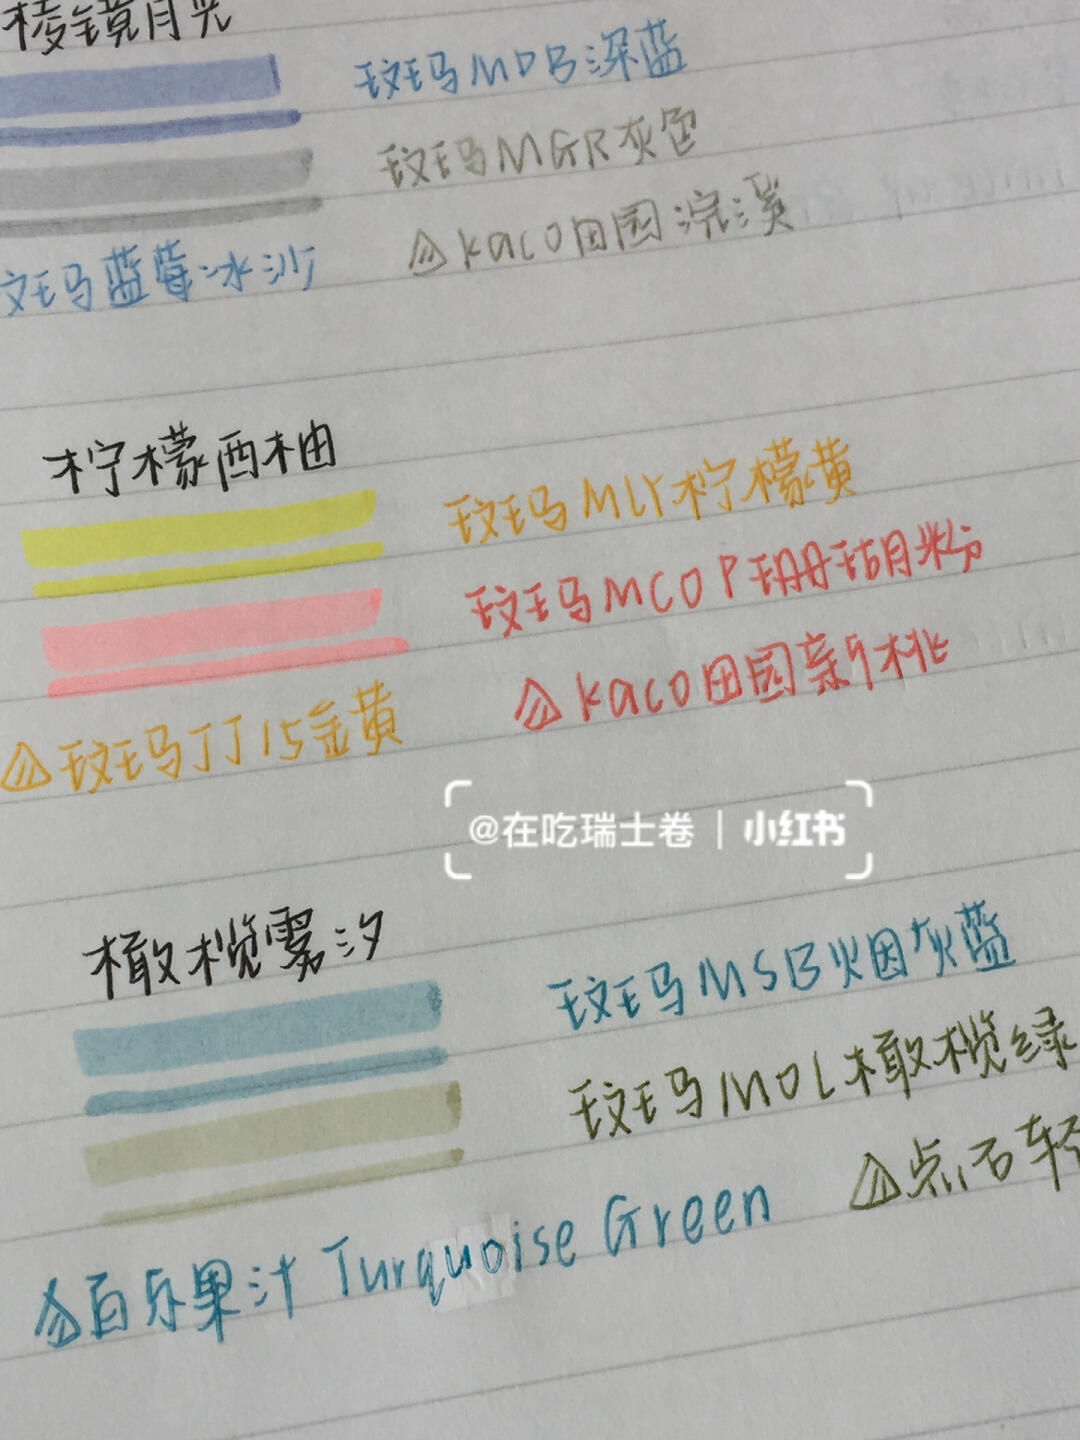 棱镜月光
斑马MDB深蓝
斑马MGR灰色
斑马蓝莓冰沙
kaco田园浣溪
柠檬西柚
斑马MLY柠檬黄
斑马MCOP珊瑚粉
斑马JJ15金黄
kaco田园新桃
@在吃瑞士卷 | 小红书
橄榄雾汐
斑马MSB烟灰蓝
斑马MOL橄榄绿
点石轻
百乐果汁 Turquoise Green